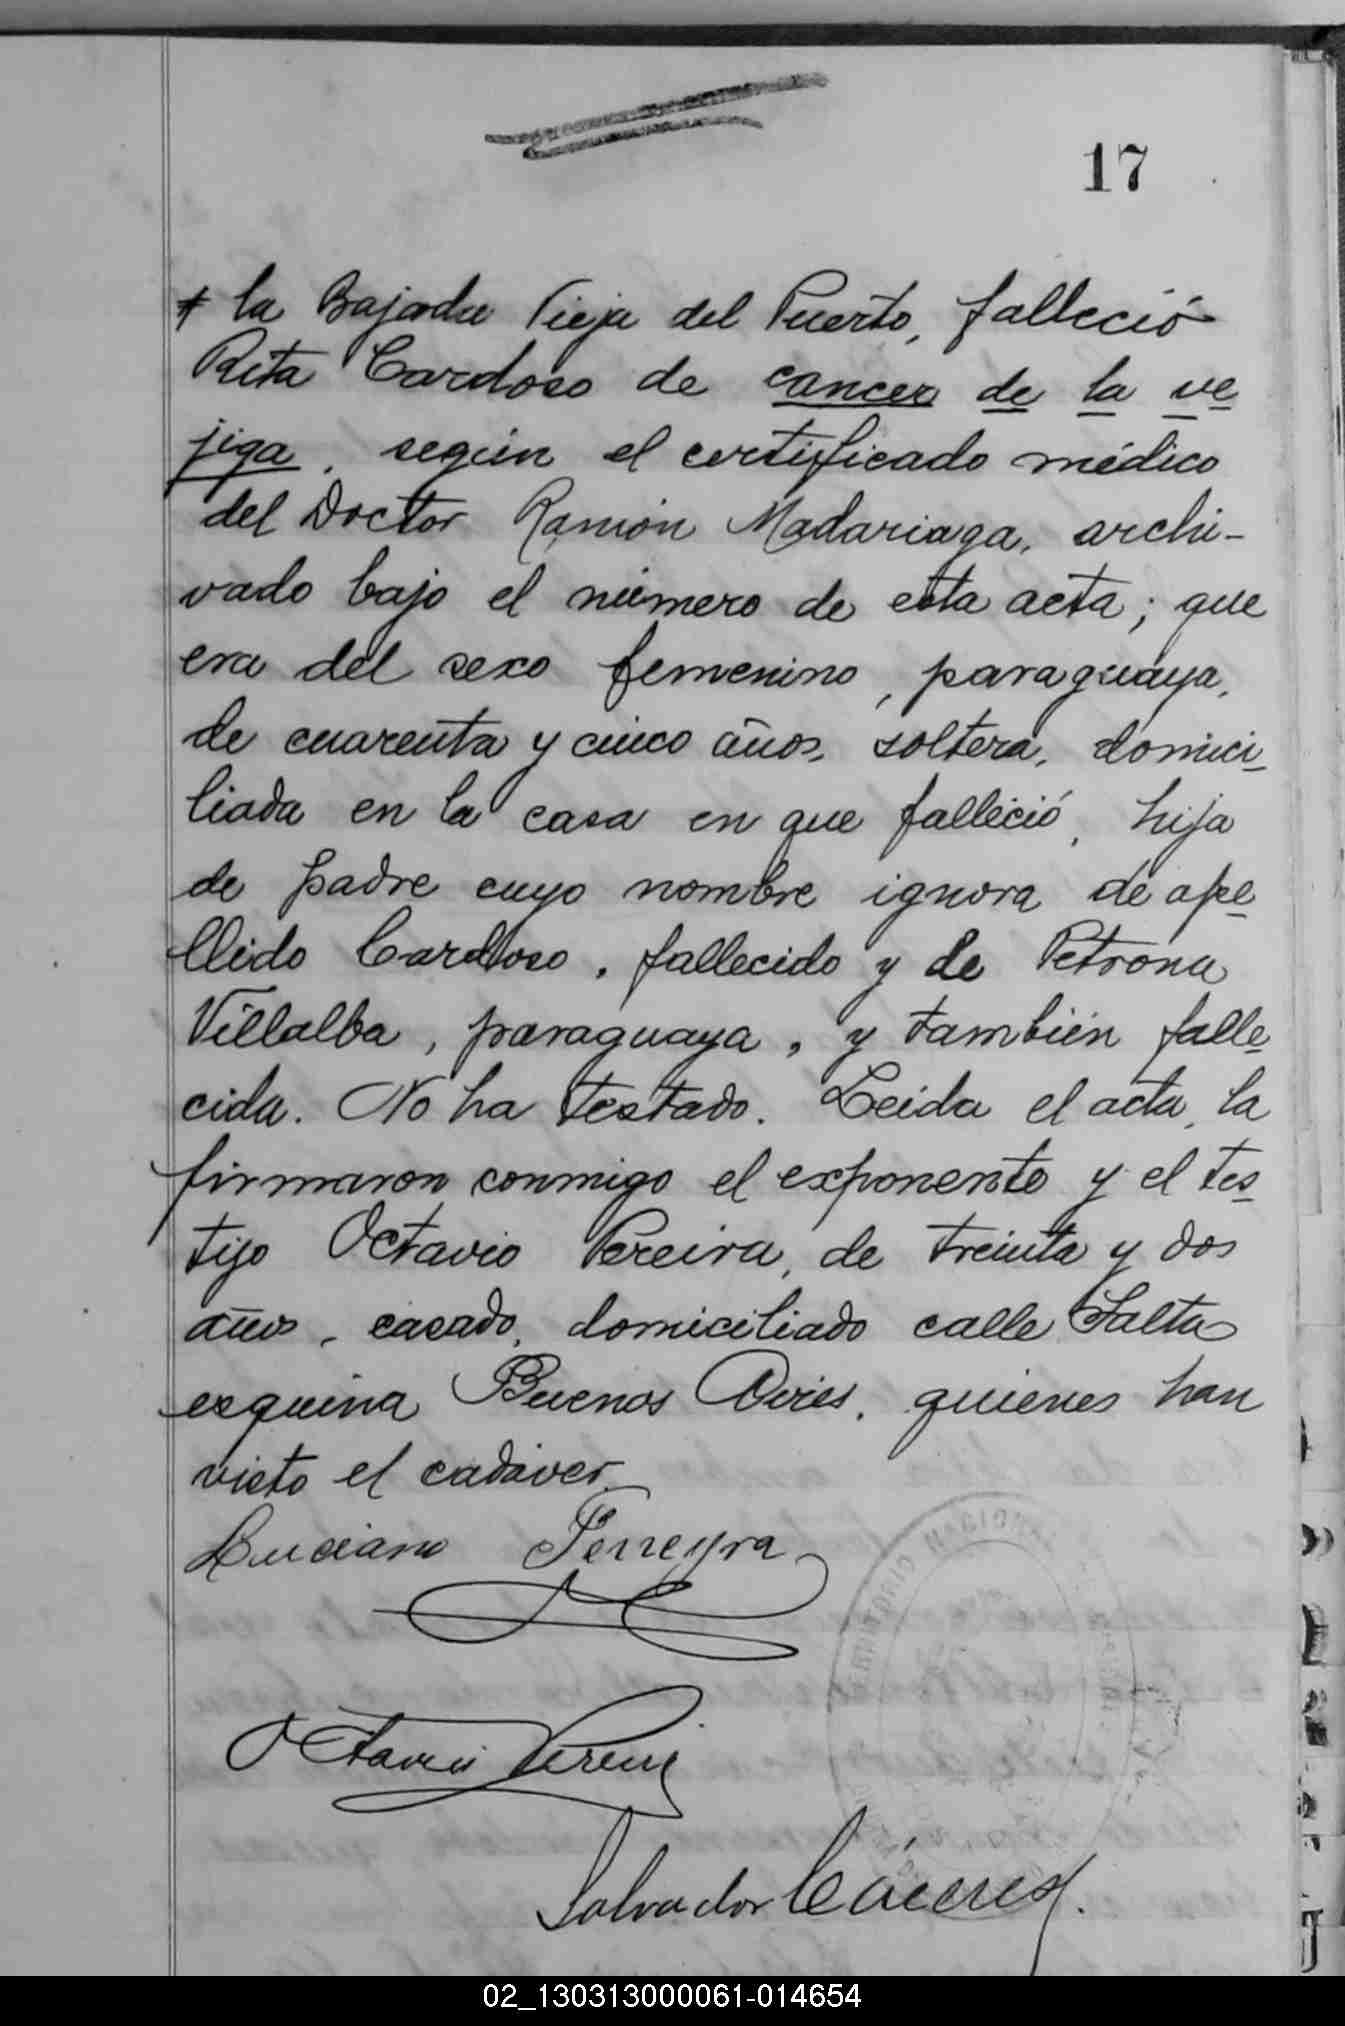 17
+ la Bajada Vieja del Puerto, falleció
Rita Cardoso de cancer de la ve
jiga, según el certificado médico
del Doctor Ramón Madariaga, archi-
vado bajo el número de esta acta; que
era del sexo femenino, paraguaya,
de cuarenta y cinco años, soltera, domici-
liada en la casa en que falleció, hija
de padre cuyo nombre ignora de ape-
llido Cardoso, fallecido y de Petrona
Villalba, paraguaya, y también falle-
cida. No ha testado. Leida el acta, la
firmaron conmigo el exponente y el tes-
tigo Octavio Pereira, de treinta y dos
años, casado, domiciliado calle Salta
esquina Buenos Aires, quienes han
visto el cadáver.
Luciano Ferreyra
Octavio Pereira
TERRITORIO NACIONAL
Salvador Cáceres
02_130313000061-014654